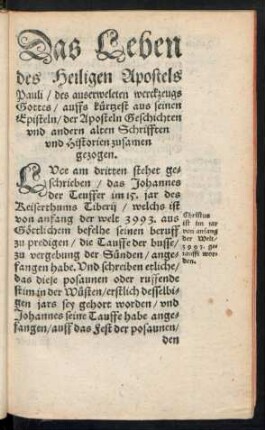 Das Leben
des Heiligen Apostels
Pauli / des auserweleten werckzeugs
Gottes / auffs kürtzest aus seinen
Episteln / der Aposteln Geschichten
vnd andern alten Schrifften
vnd Historien zusamen
gezogen.
LVce am dritten stehet ge-
schrieben / das Johannes
der Teuffer im 15. jar des
Keiserthums Tiberij / welchs ist
von anfang der welt 3993. aus
Göttlichem befelhe seinen beruff
zu predigen / die Tauffe der busse /
zu vergebung der Sünden / ange-
fangen habe. Vnd schreiben etliche /
das diese posaunen oder ruffende
stim in der Wüsten / erstlich desselbi-
gen jars sey gehort worden / vnd
Johannes seine Tauffe habe ange-
fangen / auff das Fest der posaunen /
den
Christus
ist im jar
von anfang
der Welt /
3993. ge-
taufft wor-
den.